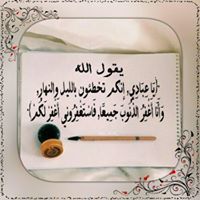 يقول الله
(يَا عِبَادِي، إنكم تخطئون بالليل والنهار،
وَأَنَا أَغْفِرُ الذُّنُوبَ جَمِيعًا، فَاسْتَغْفِرُونِي أَغْفِرْ لَكُمْ)